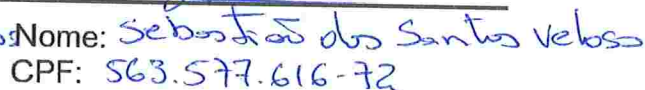 Nome: Sebastião dos Santos Veloso
CPF: 563.577.616-72